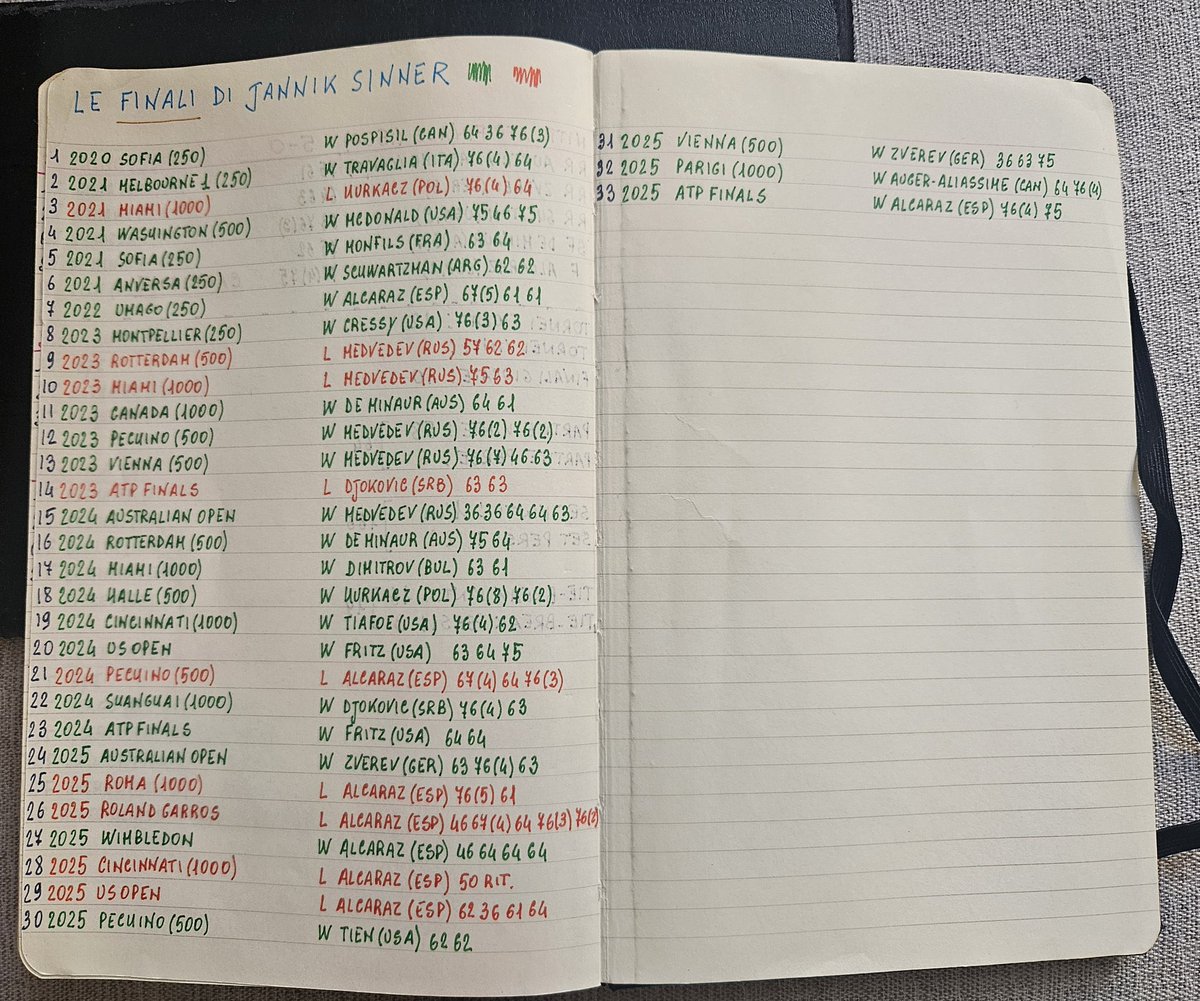 LE FINALI DI JANNIK SINNER
1 2020 SOFIA (250) W POSPISIL (CAN) 64 36 76(3)
2 2021 MELBOURNE 1 (250) W TRAVAGLIA (ITA) 76(4) 64
3 2021 MIAMI (1000) L HURKACZ (POL) 76(4) 64
4 2021 WASHINGTON (500) W MCDONALD (USA) 75 46 75
5 2021 SOFIA (250) W MONFILS (FRA) 63 64
6 2021 ANVERSA (250) W SCHWARTZMAN (ARG) 62 62
7 2022 UMAGO (250) W ALCARAZ (ESP) 67(5) 61 61
8 2023 MONTPELLIER (250) W CRESSY (USA) 76(3) 63
9 2023 ROTTERDAM (500) L MEDVEDEV (RUS) 57 62 62
10 2023 MIAMI (1000) L MEDVEDEV (RUS) 75 63
11 2023 CANADA (1000) W DE MINAUR (AUS) 64 61
12 2023 PECHINO (500) W MEDVEDEV (RUS) 76(2) 76(2)
13 2023 VIENNA (500) W MEDVEDEV (RUS) 76(7) 46 63
14 2023 ATP FINALS L DJOKOVIC (SRB) 63 63
15 2024 AUSTRALIAN OPEN W MEDVEDEV (RUS) 36 36 64 64 63
16 2024 ROTTERDAM (500) W DE MINAUR (AUS) 75 64
17 2024 MIAMI (1000) W DIMITROV (BUL) 63 61
18 2024 HALLE (500) W HURKACZ (POL) 76(8) 76(2)
19 2024 CINCINNATI (1000) W TIAFOE (USA) 76(4) 62
20 2024 US OPEN W FRITZ (USA) 63 64 75
21 2024 PECHINO (500) L ALCARAZ (ESP) 67(4) 64 76(3)
22 2024 SHANGHAI (1000) W DJOKOVIC (SRB) 76(4) 63
23 2024 ATP FINALS W FRITZ (USA) 64 64
24 2025 AUSTRALIAN OPEN W ZVEREV (GER) 63 76(4) 63
25 2025 ROMA (1000) L ALCARAZ (ESP) 76(5) 61
26 2025 ROLAND GARROS L ALCARAZ (ESP) 46 67(4) 64 76(3) 76(2)
27 2025 WIMBLEDON W ALCARAZ (ESP) 46 64 64 64
28 2025 CINCINNATI (1000) L ALCARAZ (ESP) 50 RIT.
29 2025 US OPEN L ALCARAZ (ESP) 62 36 61 64
30 2025 PECHINO (500) W TIEN (USA) 62 62
31 2025 VIENNA (500) W ZVEREV (GER) 36 63 75
32 2025 PARIGI (1000) W AUGER-ALIASSIME (CAN) 64 76(4)
33 2025 ATP FINALS W ALCARAZ (ESP) 76(4) 75